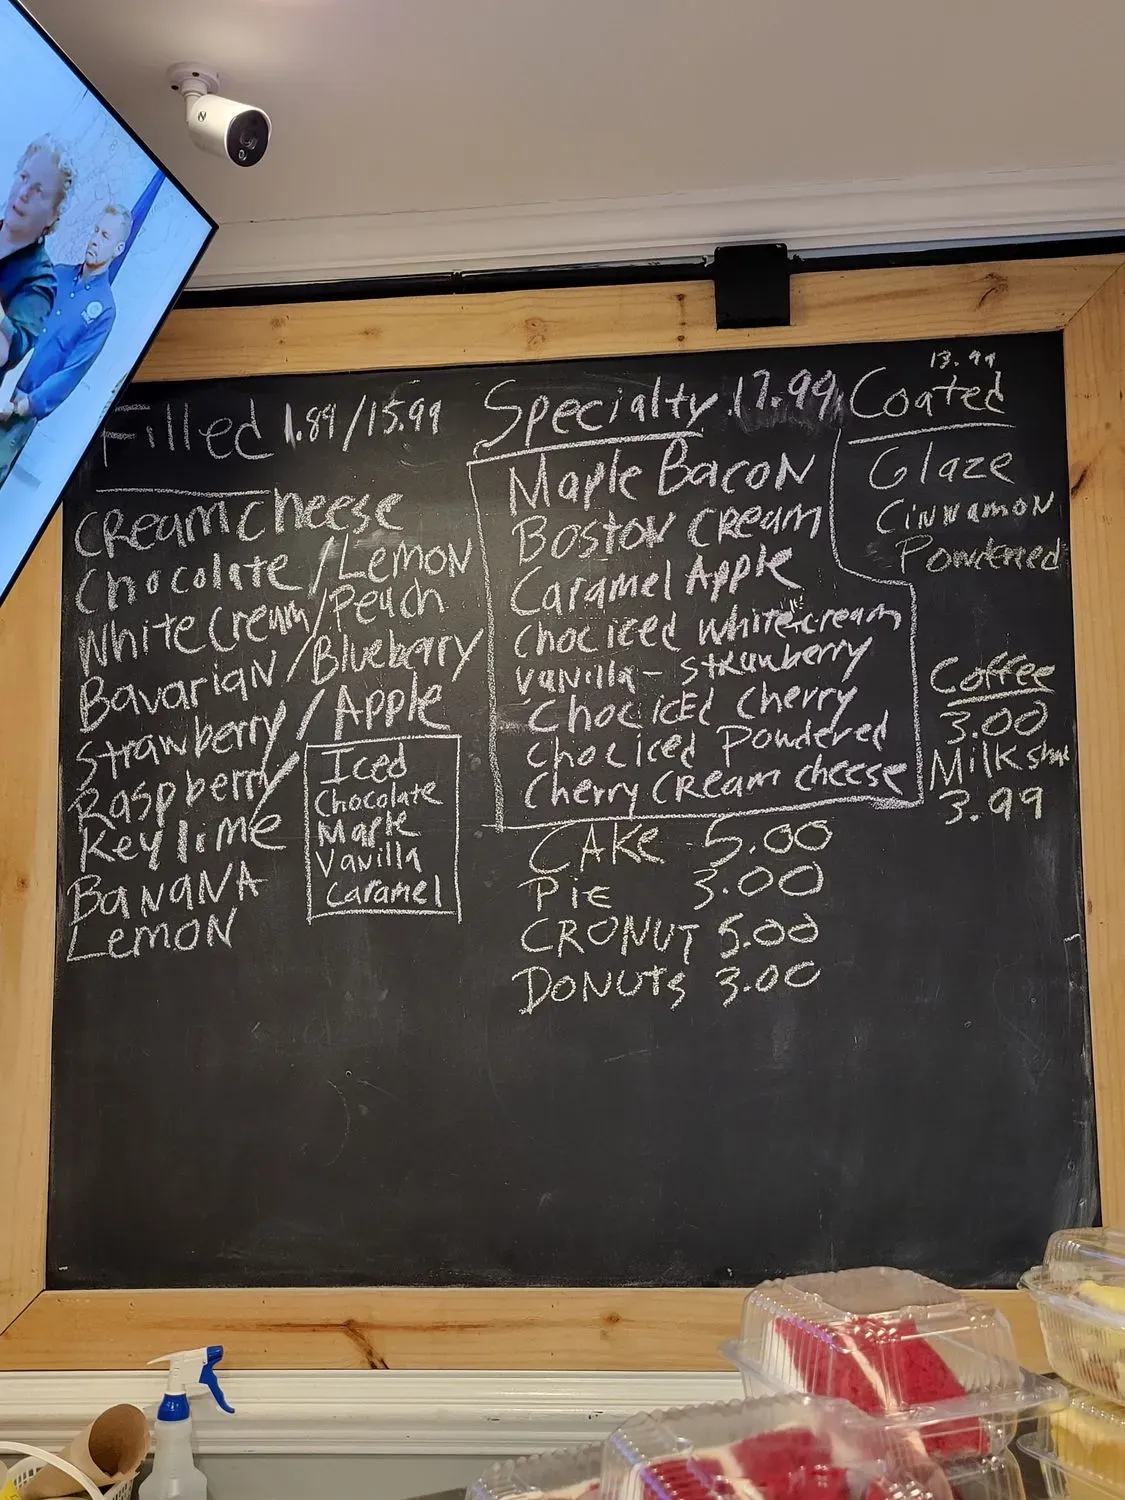 Filled 1.89/15.99
Cream cheese
Chocolate/Lemon
White Cream/Peach
Bavarian/Blueberry
Strawberry/Apple
Raspberry/
Key lime
Banana
Lemon
Iced
Chocolate
Maple
Vanilla
Caramel
Specialty 17.99
Maple Bacon
Boston Cream
Caramel Apple
Choc iced white cream
Vanilla - Strawberry
Choc iced Cherry
Choc iced Powdered
Cherry Cream cheese
CAKE 5.00
PiE 3.00
CRONUT 5.00
DONUTS 3.00
13.99
Coated
Glaze
Cinnamon
Powdered
Coffee
3.00
Milkshak
3.99